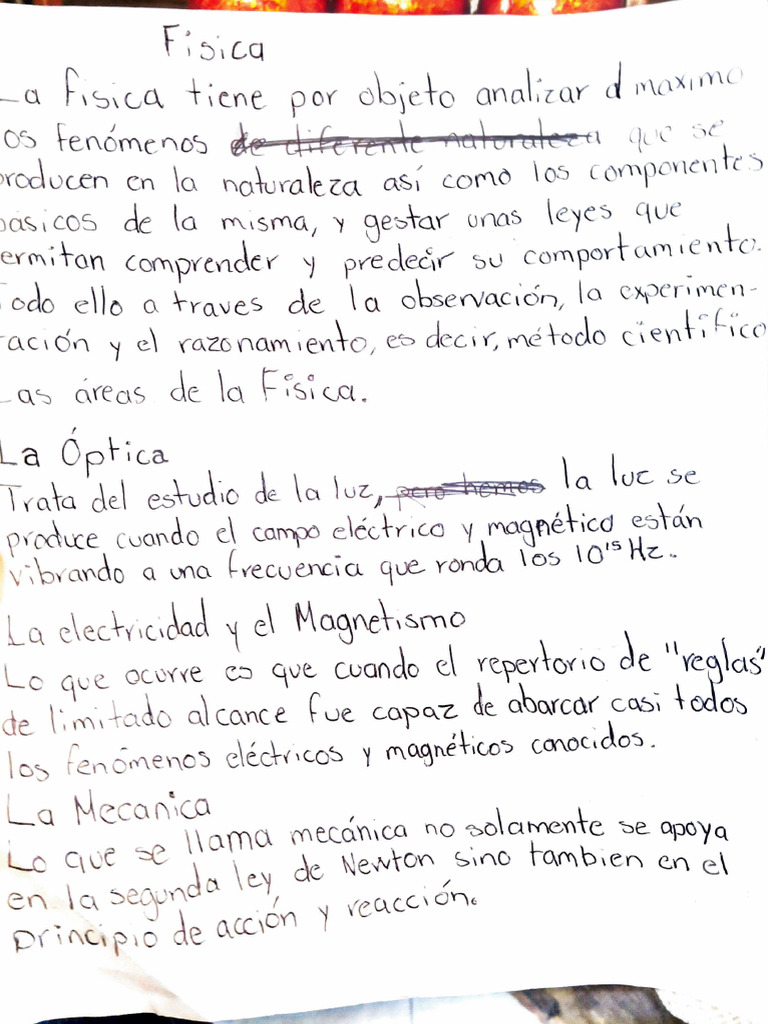 Fisica
La fisica tiene por objeto analizar al maximo
los fenómenos de diferente naturaleza que se
producen en la naturaleza así como los componentes
básicos de la misma, y gestar unas leyes que
permitan comprender y predecir su comportamiento.
Todo ello a traves de la observación, la experimen-
tación y el razonamiento, es decir, método científico
Las áreas de la Física.
La Óptica
Trata del estudio de la luz, pero hemos la luz se
produce cuando el campo eléctrico y magnético están
vibrando a una frecuencia que ronda los 10¹⁵ Hz.
La electricidad y el Magnetismo
Lo que ocurre es que cuando el repertorio de "reglas"
de limitado alcance fue capaz de abarcar casi todos
los fenómenos eléctricos y magnéticos conocidos.
La Mecanica
Lo que se llama mecánica no solamente se apoya
en la segunda ley de Newton sino tambien en el
principio de acción y reacción.